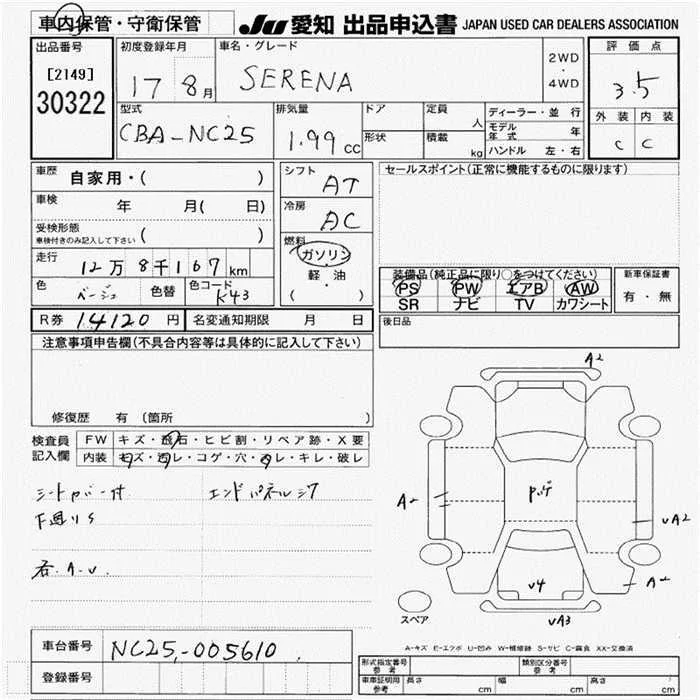 車内保管・守衛保管
JU 愛知 出品申込書 JAPAN USED CAR DEALERS ASSOCIATION
出品番号
[2149]
30322
初度登録年月
17 8月
車名・グレード
SERENA
2WD
・
4WD
評価点
3.5
外装 内装
C C
型式
CBA-NC25
排気量
1.99 cc
ドア
形状
定員 人
積載 kg
ディーラー・並行
モデル年式 年
ハンドル 左・右
車歴
自家用・( )
車検 年 月( 日)
受検形態
車検付きのみ記入して下さい ( )
走行 12万8千167km
色 ベージュ 色替 色コード K43
シフト
AT
冷房
AC
燃料
ガソリン
軽・油
( )
セールスポイント(正常に機能するものに限ります)
装備品(純正品に限り○をつけてください)
PS PW エアB AW
SR ナビ TV カワシート
新車保証書
有・無
R券 14120 円 名変通知期限 月 日
後日品
注意事項申告欄(不具合内容等は具体的に記入して下さい)
修復歴 有 (箇所 )
検査員
記入欄
FW キズ・飛石・ヒビ割・リペア跡・X要
内装 キズ・汚レ・コゲ・穴・スレ・キレ・破レ
シートカバー付 エンドパネルシワ
下廻りS
A2
A2
vA2
A2
v4
vA3
スペア
A-キズ E-エクボ U-凹み W-補修跡 S-サビ C-腐食 XX-交換済
車台番号 NC25-005610
登録番号
形式指定番号
参考
類別区分番号
参考
車庫証明用
参考
長さ cm 幅 cm 高さ cm